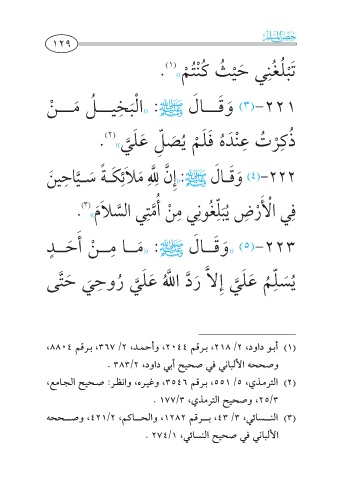 حصن المسلم
١٢٩
تَبْلُغُنِي حَيْثُ كُنْتُمْ»(١).
٢٢١-(٣) وَقَـالَ ﷺ: «الْبَخِيـلُ مَـنْ
ذُكِرْتُ عِنْدَهُ فَلَمْ يُصَلِّ عَلَيَّ»(٢).
٢٢٢-(٤) وَقَـالَ ﷺ: «إِنَّ لِلَّهِ مَلَائِكَـةً سَـيَّاحِينَ
فِي الْأَرْضِ يُبَلِّغُونِي مِنْ أُمَّتِي السَّلَامَ»(٣).
٢٢٣-(٥) «وَقَـالَ ﷺ: «مَـا مِـنْ أَحَـدٍ
يُسَلِّمُ عَلَيَّ إِلاَّ رَدَّ اللَّهُ عَلَيَّ رُوحِيَ حَتَّى
(١) أبـو داود، ٢/ ٢١٨، بـرقم ٢٠٤٤، وأحمد، ٢/ ٣٦٧، برقم ٨٨٠٤،
وصححه الألباني في صحيح أبي داود، ٣٨٣/٢ .
(٢) الترمذي، ٥/ ٥٥١، برقم ٣٥٤٦، وغيره، وانظر: صحيح الجامع،
٢٥/٣، وصحيح الترمذي، ١٧٧/٣ .
(٣) النـسائي، ٣/ ٤٣، بـرقم ١٢٨٢، والحـاكم، ٤٢١/٢، وصـححه
الألباني في صحيح النسائي، ٢٧٤/١ .